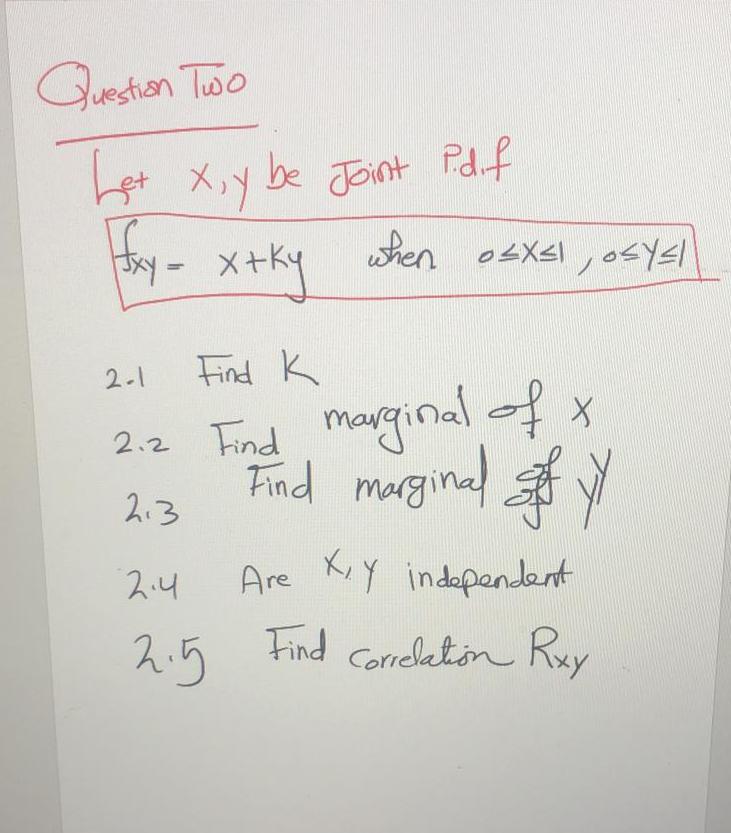 Question Two
Let X, y be Joint P.d.f
fxy = x+ky when 0≤X≤1, 0≤Y≤1
2.1 Find K
2.2 Find marginal of x
2.3 Find marginal of y
2.4 Are X, Y independent
2.5 Find Correlation Rxy